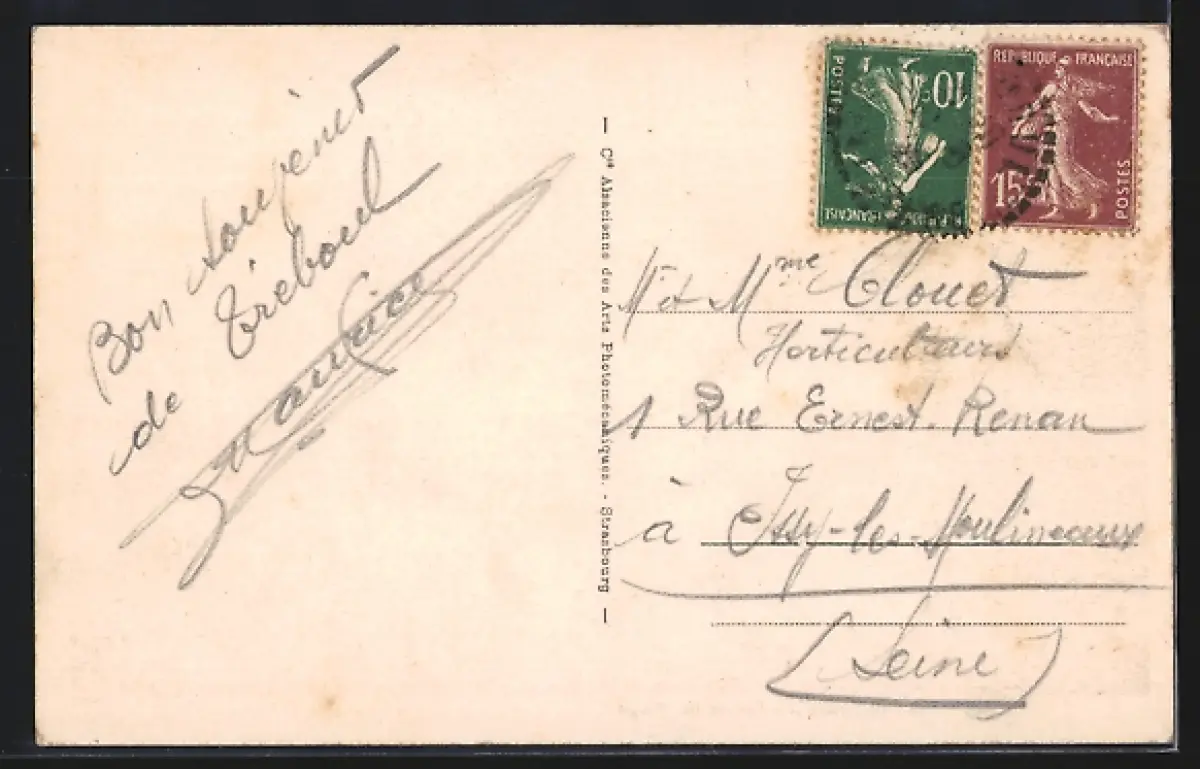 Bon souvenir
de Tréboul
Cie Alsacienne des Arts Photomécaniques. - Strasbourg
POSTES
10c
REPUBLIQUE FRANÇAISE
REPUBLIQUE FRANÇAISE
15c
POSTES
Mr et Mme Clouet
Horticulteurs
1 Rue Ernest. Renan
à Issy-les-Moulineaux
(Seine)